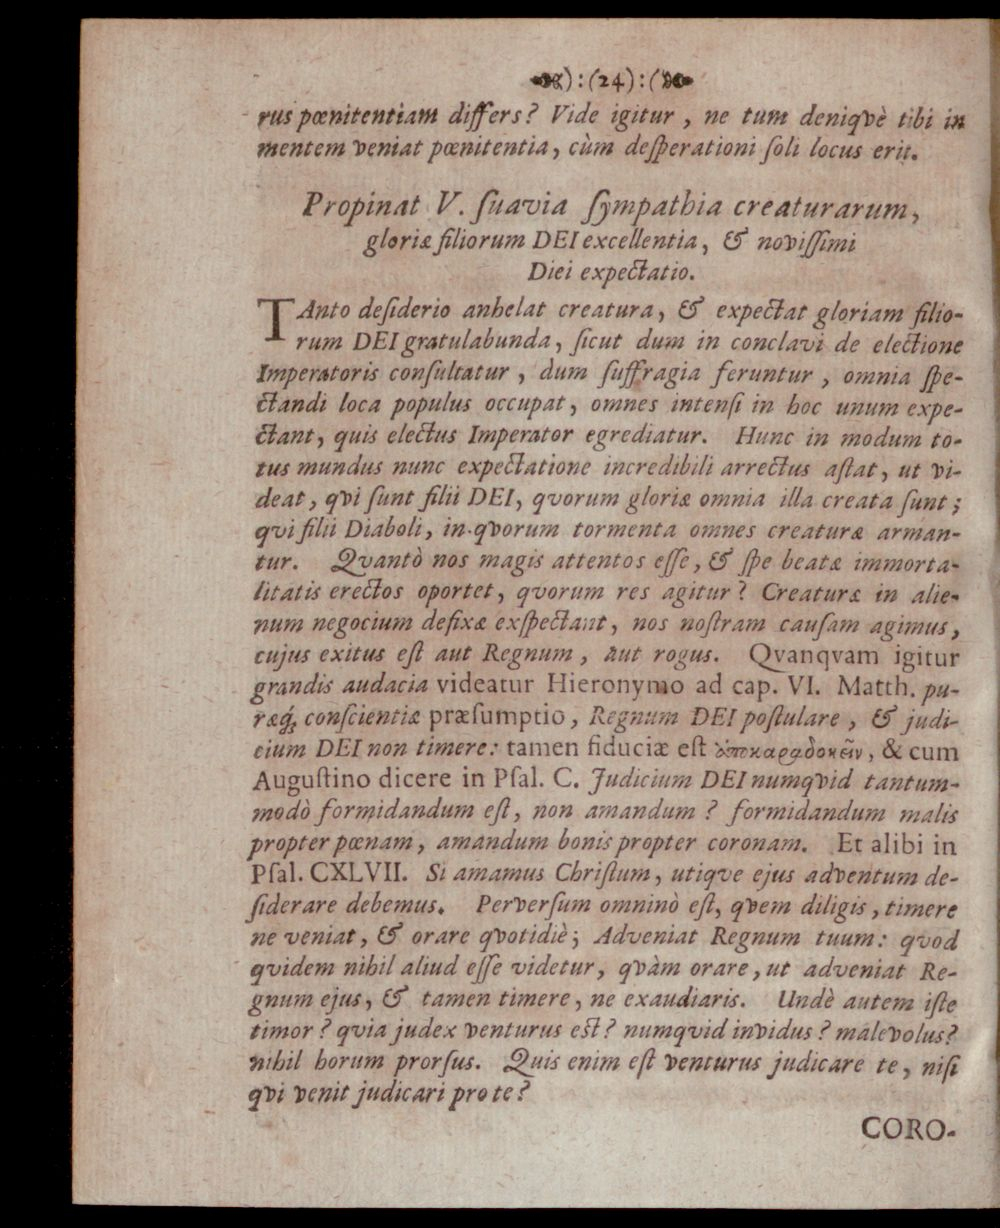 ):(24):(
rus pœnitentiam differs? Vide igitur, ne tum deniqvè tibi in
mentem veniat pœnitentia, cùm deſperationi ſoli locus erit.
Propinat V. ſuavia ſympathia creaturarum,
gloriæ filiorum DEI excellentia, & noviſſimi
Diei expectatio.
TAnto deſiderio anhelat creatura, & expectat gloriam filio-
rum DEI gratulabunda, ſicut dum in conclavi de electione
Imperatoris conſultatur, dum ſuffragia feruntur, omnia ſpe-
ctandi loca populus occupat, omnes intenſi in hoc unum expe-
ctant, quis electus Imperator egrediatur. Hunc in modum to-
tus mundus nunc expectatione incredibili arrectus aſtat, ut vi-
deat, qvi ſunt filii DEI, qvorum gloriæ omnia illa creata ſunt;
qvi filii Diaboli, in qvorum tormenta omnes creaturæ arman-
tur. Qvantò nos magis attentos eſſe, & ſpe beatæ immorta-
litatis erectos oportet, qvorum res agitur? Creaturæ in alie-
num negocium defixæ exſpectant, nos noſtram cauſam agimus,
cujus exitus eſt aut Regnum, aut rogus. Qvanqvam igitur
grandis audacia videatur Hieronymo ad cap. VI. Matth. pu-
ræq́; conſcientiæ præſumptio, Regnum DEI poſtulare, & judi-
cium DEI non timere: tamen fiduciæ eſt ἀποκαραδοκεῖν, & cum
Auguſtino dicere in Pſal. C. Judicium DEI numqvid tantum-
modò formidandum eſt, non amandum? formidandum malis
propter pœnam, amandum bonis propter coronam. Et alibi in
Pſal. CXLVII. Si amamus Chriſtum, utiqve ejus adventum de-
ſiderare debemus. Perverſum omninò eſt, qvem diligis, timere
ne veniat, & orare qvotidiè; Adveniat Regnum tuum: qvod
qvidem nihil aliud eſſe videtur, qvàm orare, ut adveniat Re-
gnum ejus, & tamen timere, ne exaudiaris. Undè autem iſte
timor? qvia judex venturus est? numqvid invidus? malevolus?
nihil horum prorſus. Quis enim eſt venturus judicare te, niſi
qvi venit judicari pro te?
CORO-